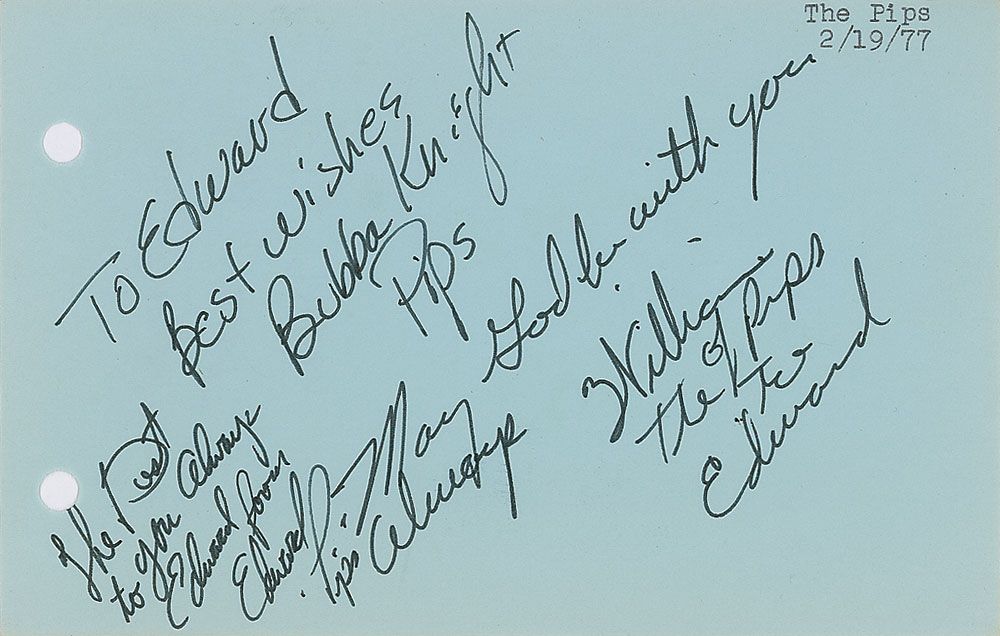 The Pips
2/19/77
To Edward
Best wishes
Bubba Knight
Pips
God be with you
William
of
the Pips
to
Edward
The Best
to you always
Edward from
Edward
Pips
always